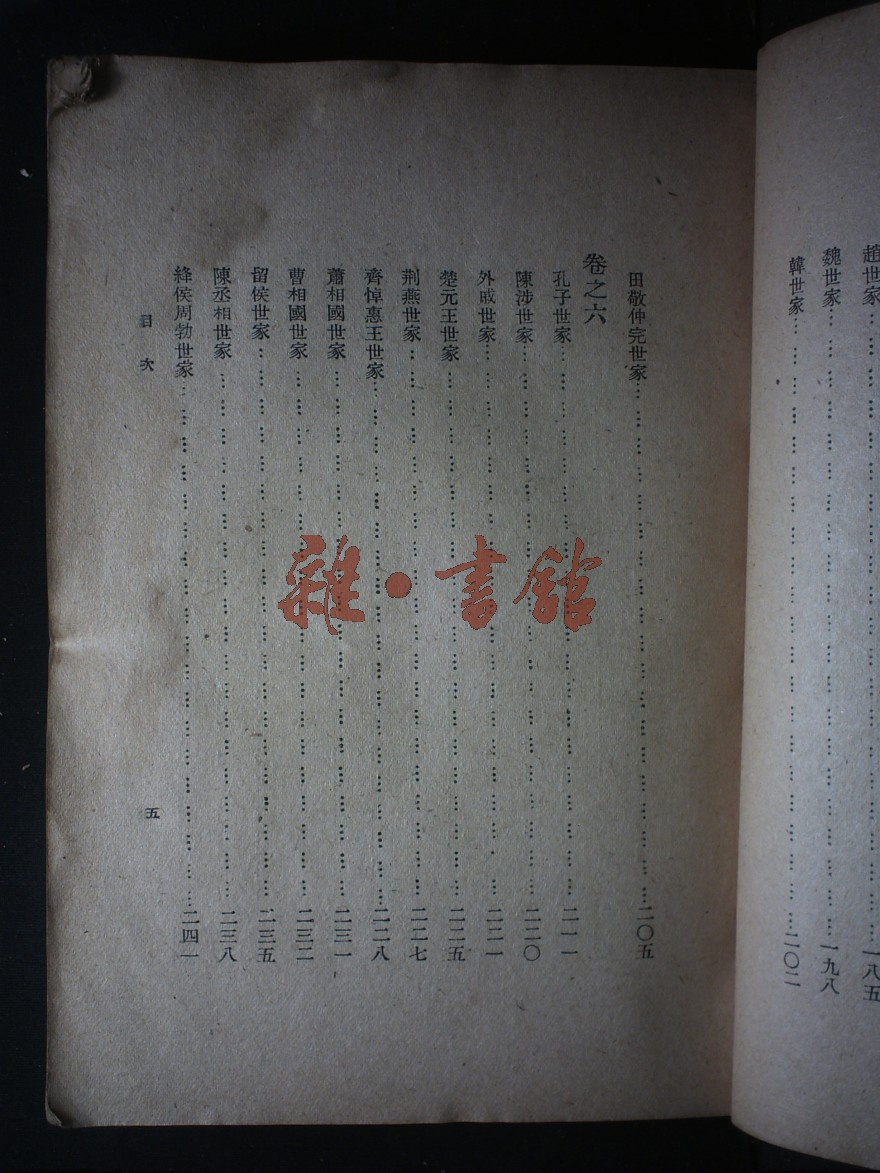 趙世家………一八五
魏世家………一九八
韓世家………二〇二
田敬仲完世家………二〇五
卷之六
孔子世家………二一一
陳涉世家………二二〇
外戚世家………二二一
楚元王世家………二二五
荆燕世家………二二七
齊悼惠王世家………二二八
蕭相國世家………二三一
曹相國世家………二三二
留侯世家………二三五
陳丞相世家………二三八
絳侯周勃世家………二四一
目次
五
雜·書館